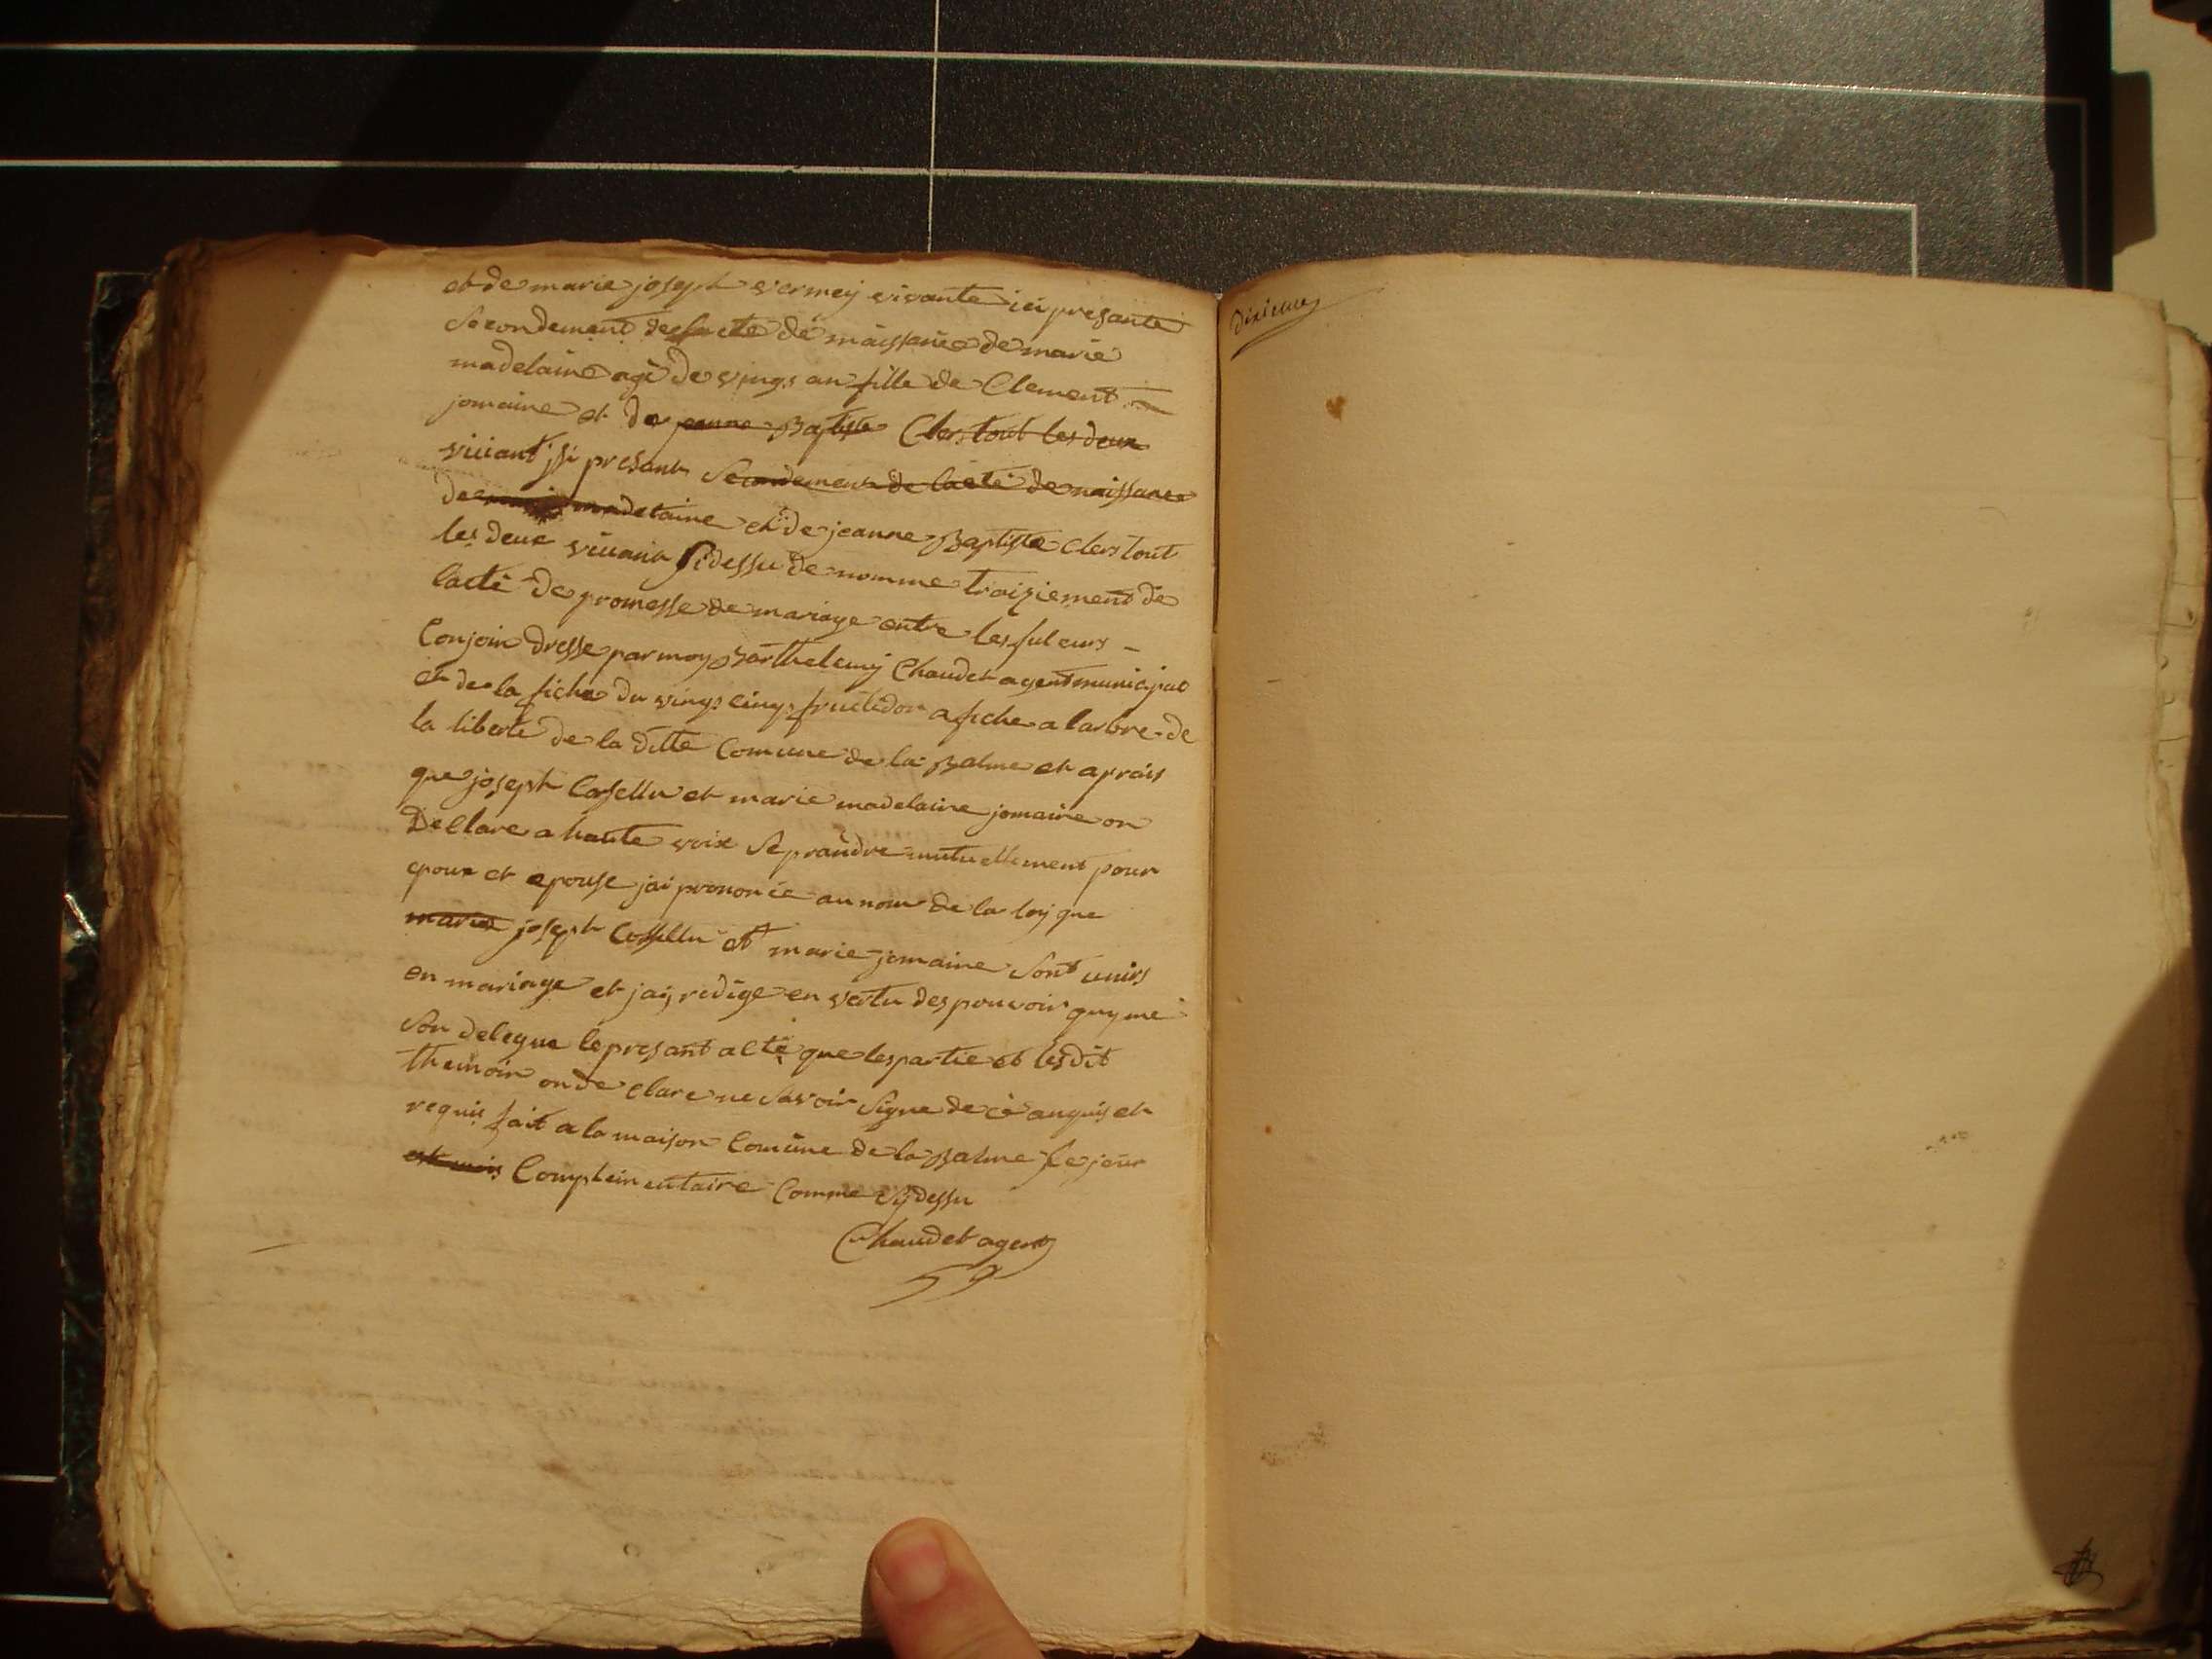 et de marie joseph vermey vivante ici presante
Secondement de lacte de naissance de marie
madelaine agé de vings an fille de Clement
jomaine et de jeanne Baptiste Clers tout les deux
vivant isi presant Secondement de lacte de naissance
de marie madelaine et de jeanne Baptiste Clers tout
les deux vivant sidessu de nomme troiziement de
lacte de promesse de mariage entre les futeurs -
Conjoin dresse par moy Barthelemy Chaudet agent municipal
et de la fiche du vings cinqs fruictidor afiche a larbre de
la liberte de la ditte Comune de la Balme et aprais
que joseph Cassellu et marie madelaine jomaine on
Declare a haute voix se prandre mutuellement pour
epoux et epouse jai prononcé au nom de la loy que
marie joseph Cossellu et marie jomaine sont uniss
en mariage et jaij redige en vertu des pouvoir quy me
son delegue le presant acte que les partie et lesdit
themoin on de clare ne savoir signe de ce anquis et
requis fait a la maison Comune de la Balme le jour
et mois Complementaire Comme sydessu
Chaudet agent
Dixieme